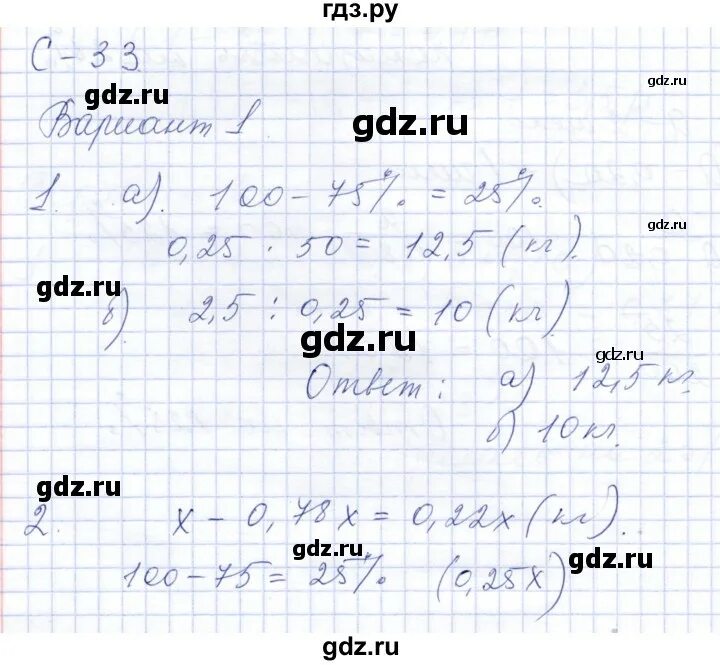 гдз.ру
С-33
gdz.ru
gdz.ru
Вариант 1.
gdz.ru
1. а). 100 - 75% = 25%.
gdz.ru
0,25 · 50 = 12,5 (кг).
gdz.ru
б). 2,5 : 0,25 = 10 (кг)
gdz.ru
gdz.ru
Ответ: а) 12,5 кг.
б) 10 кг.
gdz.ru
2. x - 0,78x = 0,22x (кг).
gdz.ru
gdz.ru
100 - 75 = 25% (0,25x)
gdz.ru